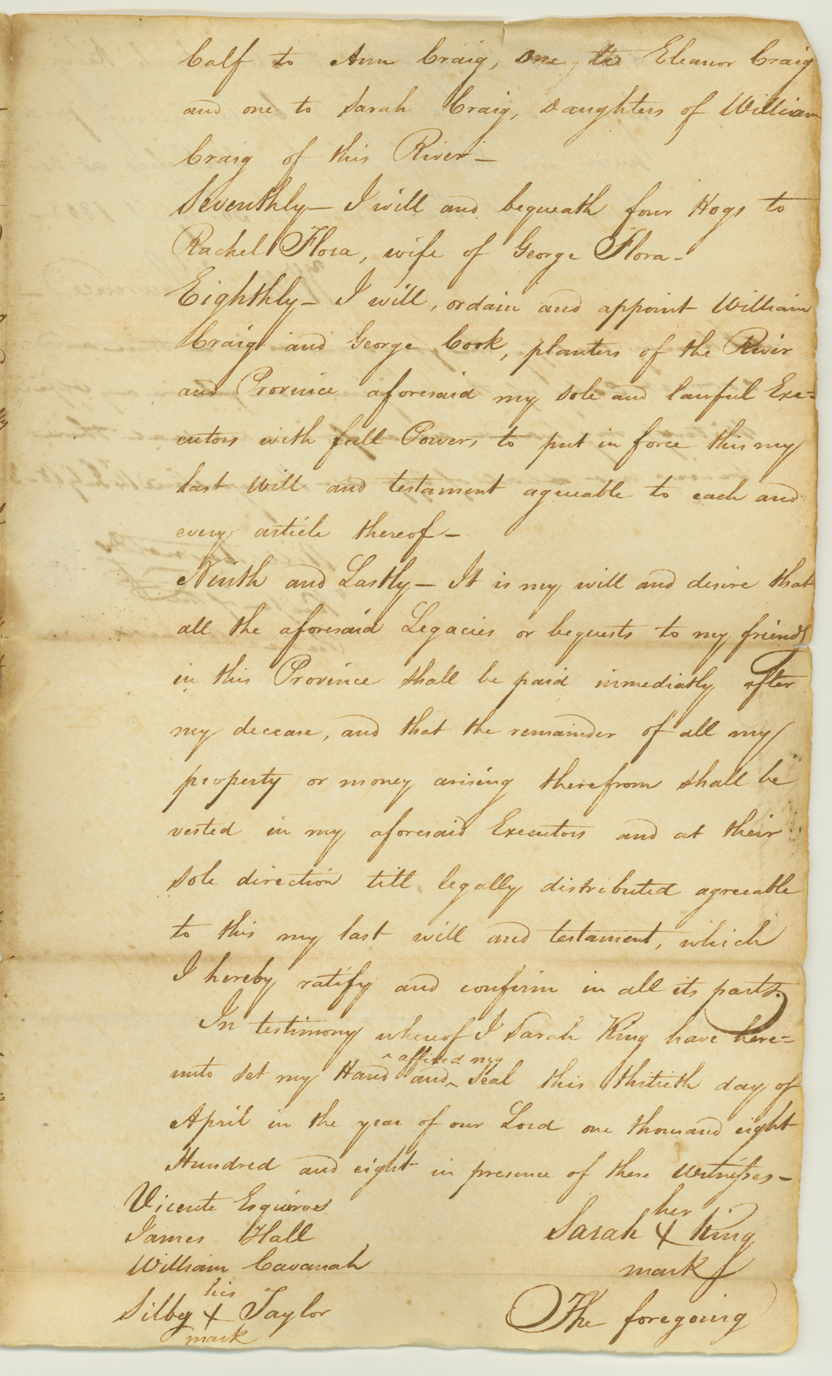 Calf to Ann Craig, one to Eleanor Craig
and one to Sarah Craig, Daughters of William
Craig of this River —
Seventhly — I will and bequeath four Hogs to
Rachel Flora, wife of George Flora —
Eighthly — I will, ordain and appoint William
Craig and George Cook, planters of the River
and Province aforesaid my sole and lawful Exe=
cutors with full Powers to put in force this my
last Will and testament agreeable to each and
every article thereof —
Ninth and Lastly — It is my will and desire that
all the aforesaid Legacies or bequests to my friends
in this Province shall be paid immediatly after
my decease, and that the remainder of all my
property or money arising therefrom shall be
vested in my aforesaid Executors and at their
sole direction till legally distributed agreeable
to this my last will and testament, which
I hereby ratify and confirm in all its parts.
In testimony whereof I Sarah King have here=
^ affixed my
unto set my Hand and ^ Seal this thirtieth day of
April in the year of our Lord one thousand eight
Hundred and eight in presence of these Witnesses —
Vicente
James Hall
William Cavanah
his
Silby X Taylor
mark
her
Sarah X King
mark
The foregoing